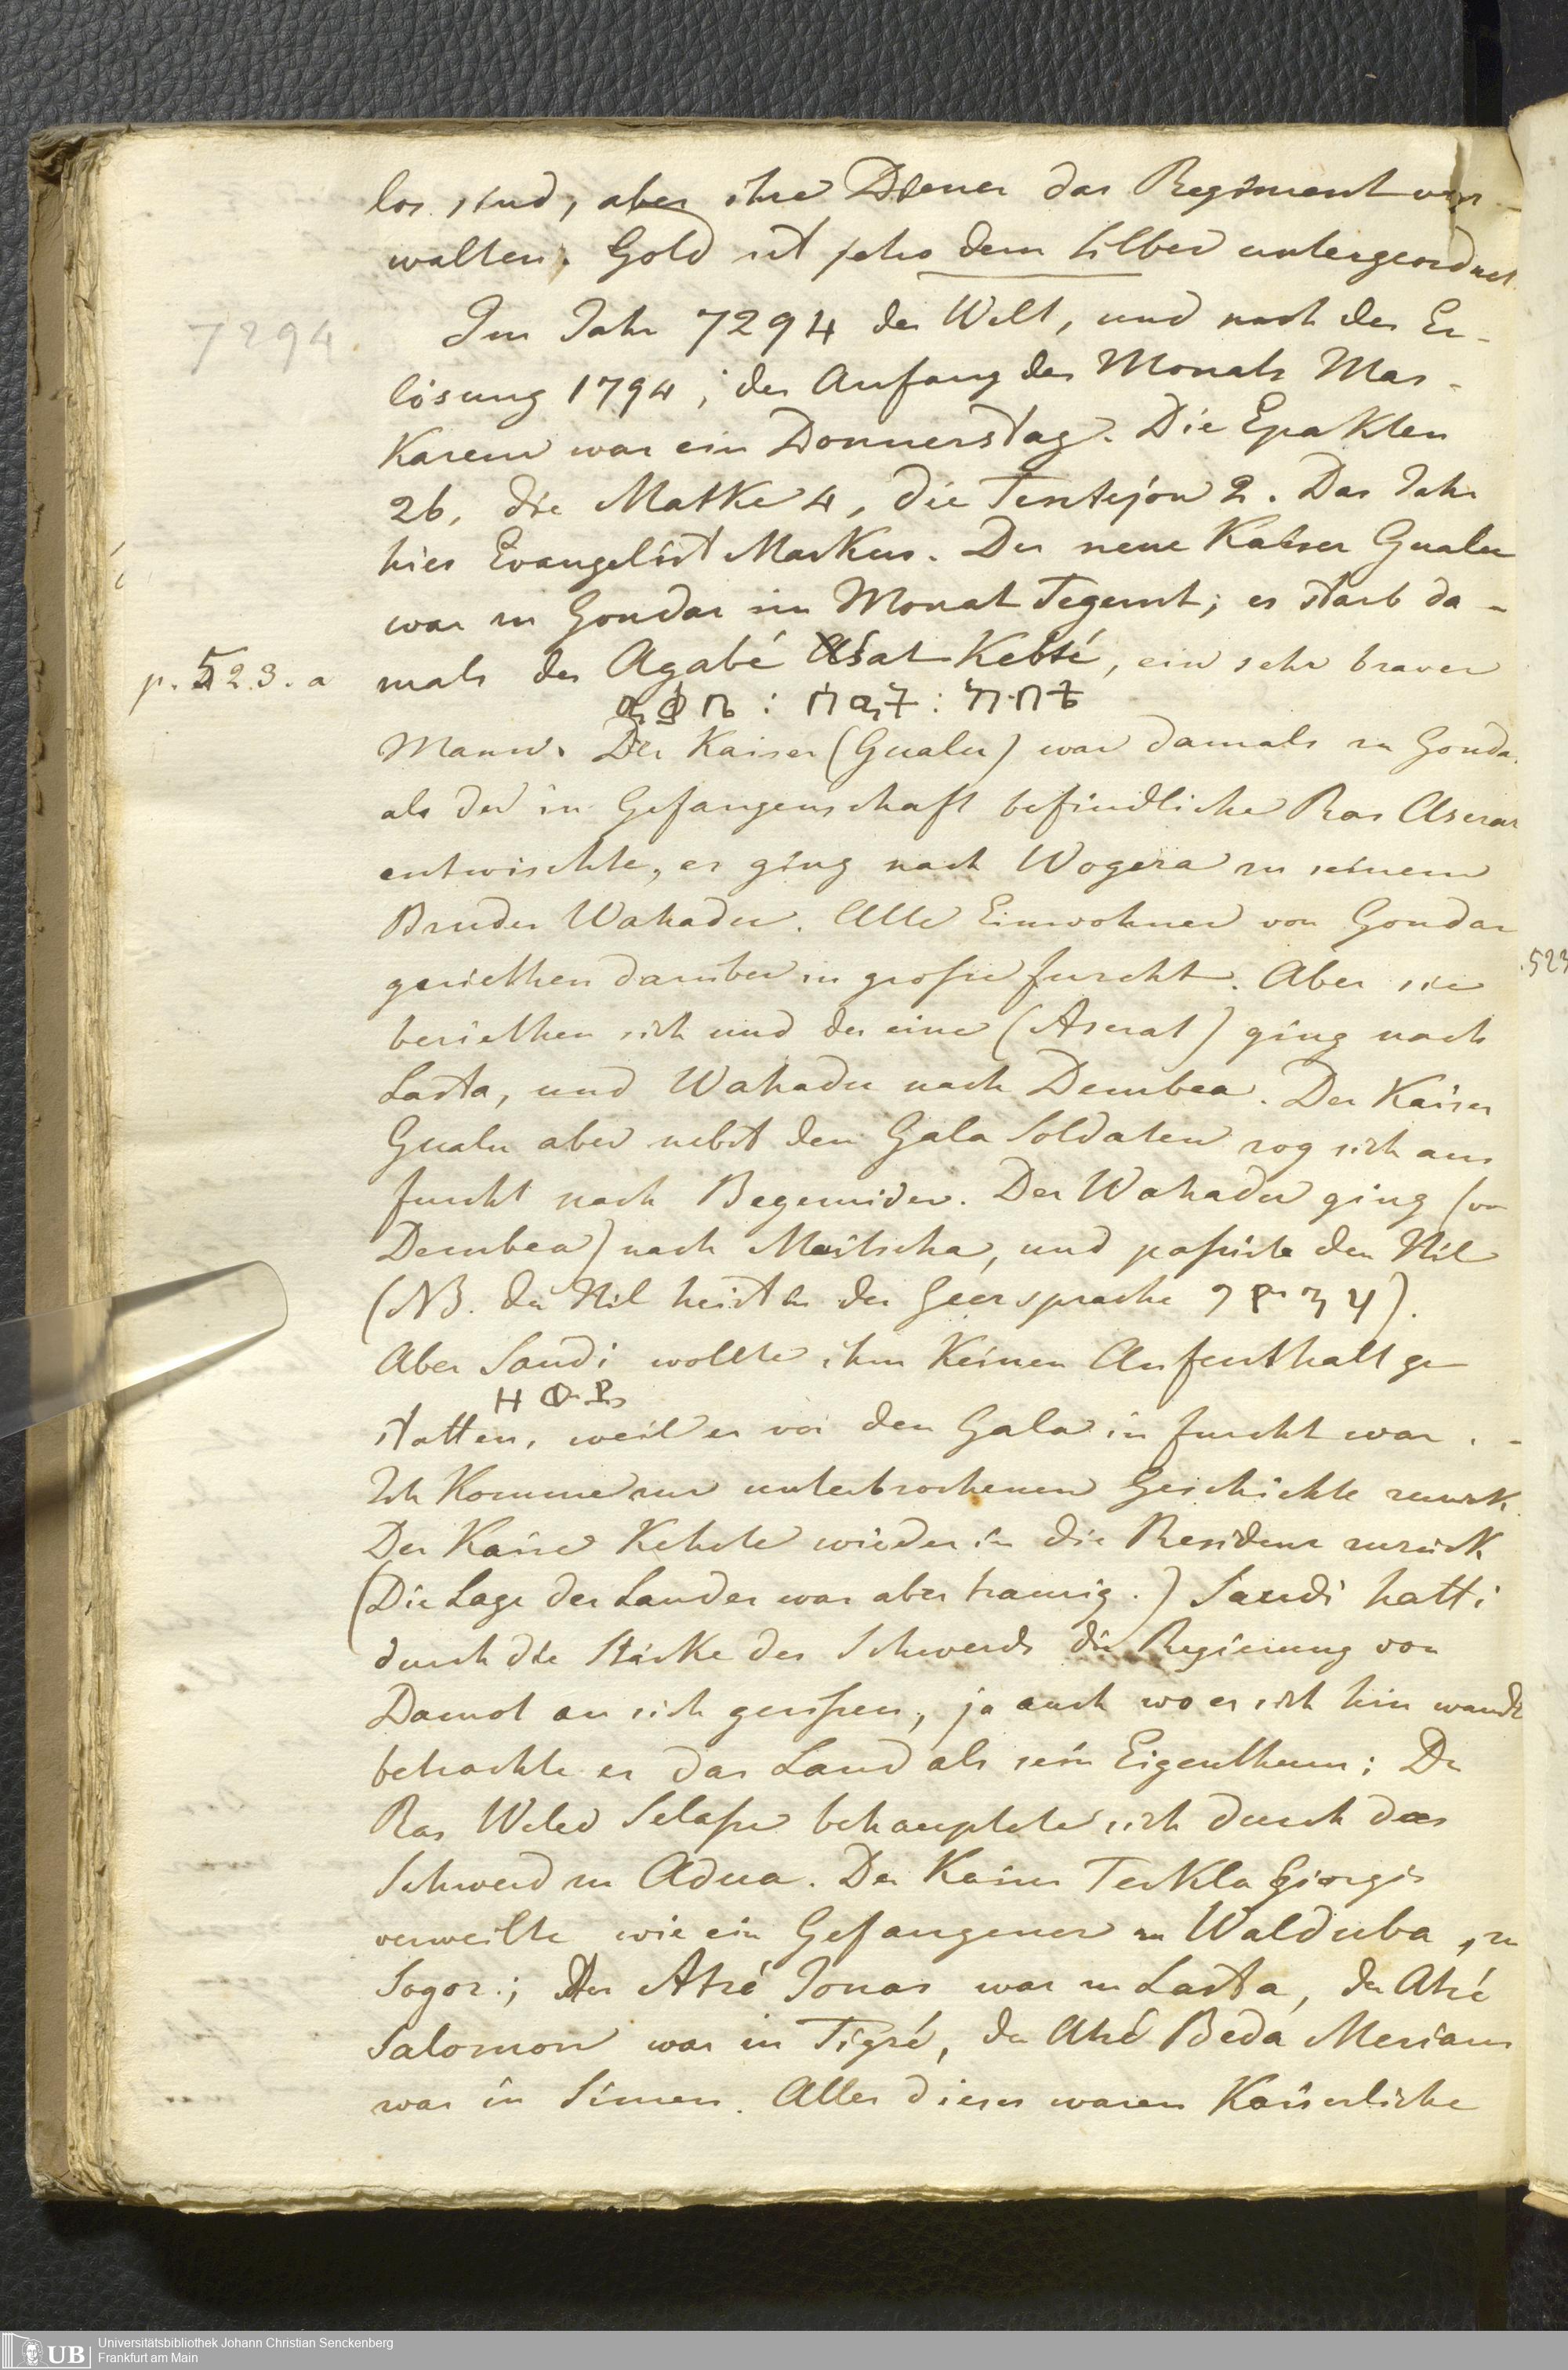 los sind, aber ihre Diener das Regiment ver-
walten. Gold ist jetzo dem Silber untergeordnet.
7294.
Im Jahr 7294 der Welt, und nach der Er-
lösung 1794; der Anfang des Monats Mas-
Karem war ein Donnerstag. Die Epakten
26, die Matke 4, die Tentejon 2. Das Jahr
hies Evangelist Markus. Der neue Kaiser Gualu
war in Gondar im Monat Tegemt; es starb da-
p. 523. a
mals der Agabé Asat Kebté, ein sehr braver
ዓቃቤ : ሰዓት : ካብቴ
Mann. Der Kaiser (Gualu) war damals in Gondar
als der in Gefangenschaft befindliche Ras Aserat
entwischte, er ging nach Wogera zu seinem
Bruder Wahadu. Alle Einwohner von Gondar
geriethen darüber in große furcht. Aber sie
beriethen sich und der eine (Aserat) ging nach
Lasta, und Wahadu nach Dembea. Der Kaiser
Gualu aber nebst den Gala Soldaten zog sich aus
furcht nach Begemider. Der Wahadu ging (von
Dembea) nach Maitscha, und paßirte den Nil
(NB. der Nil heist in der Geezsprache ግዮን).
Aber Saudi wollte ihm Keinen Aufenthalt ge-
ዘውዴ
statten, weil er vor den Gala in furcht war. -
Ich Komme zur unterbrochenen Geschichte zurück.
Der Kaiser Kehrte wieder in die Residenz zurück
(Die Lage des Landes war aber traurig.) Saudi hatte
durch die Stärke des Schwerds die Regierung von
Damot an sich gerißen, ja auch wo er sich hin wandte
betrachte er das Land als sein Eigenthum; Der
Ras Weled Selaße behauptete sich durch das
Schwerd in Adua. Der Kaiser Tekla Giorgis
verweilte wie ein Gefangener in Walduba, in
Sogor.; Der Atsé Jonas war in Lasta, der Atsé
Salomon war in Tigré, der Atsé Beda Meriam
war in Simen. Alles dieses waren Kaiserliche
523
UB
Universitätsbibliothek Johann Christian Senckenberg
Frankfurt am Main